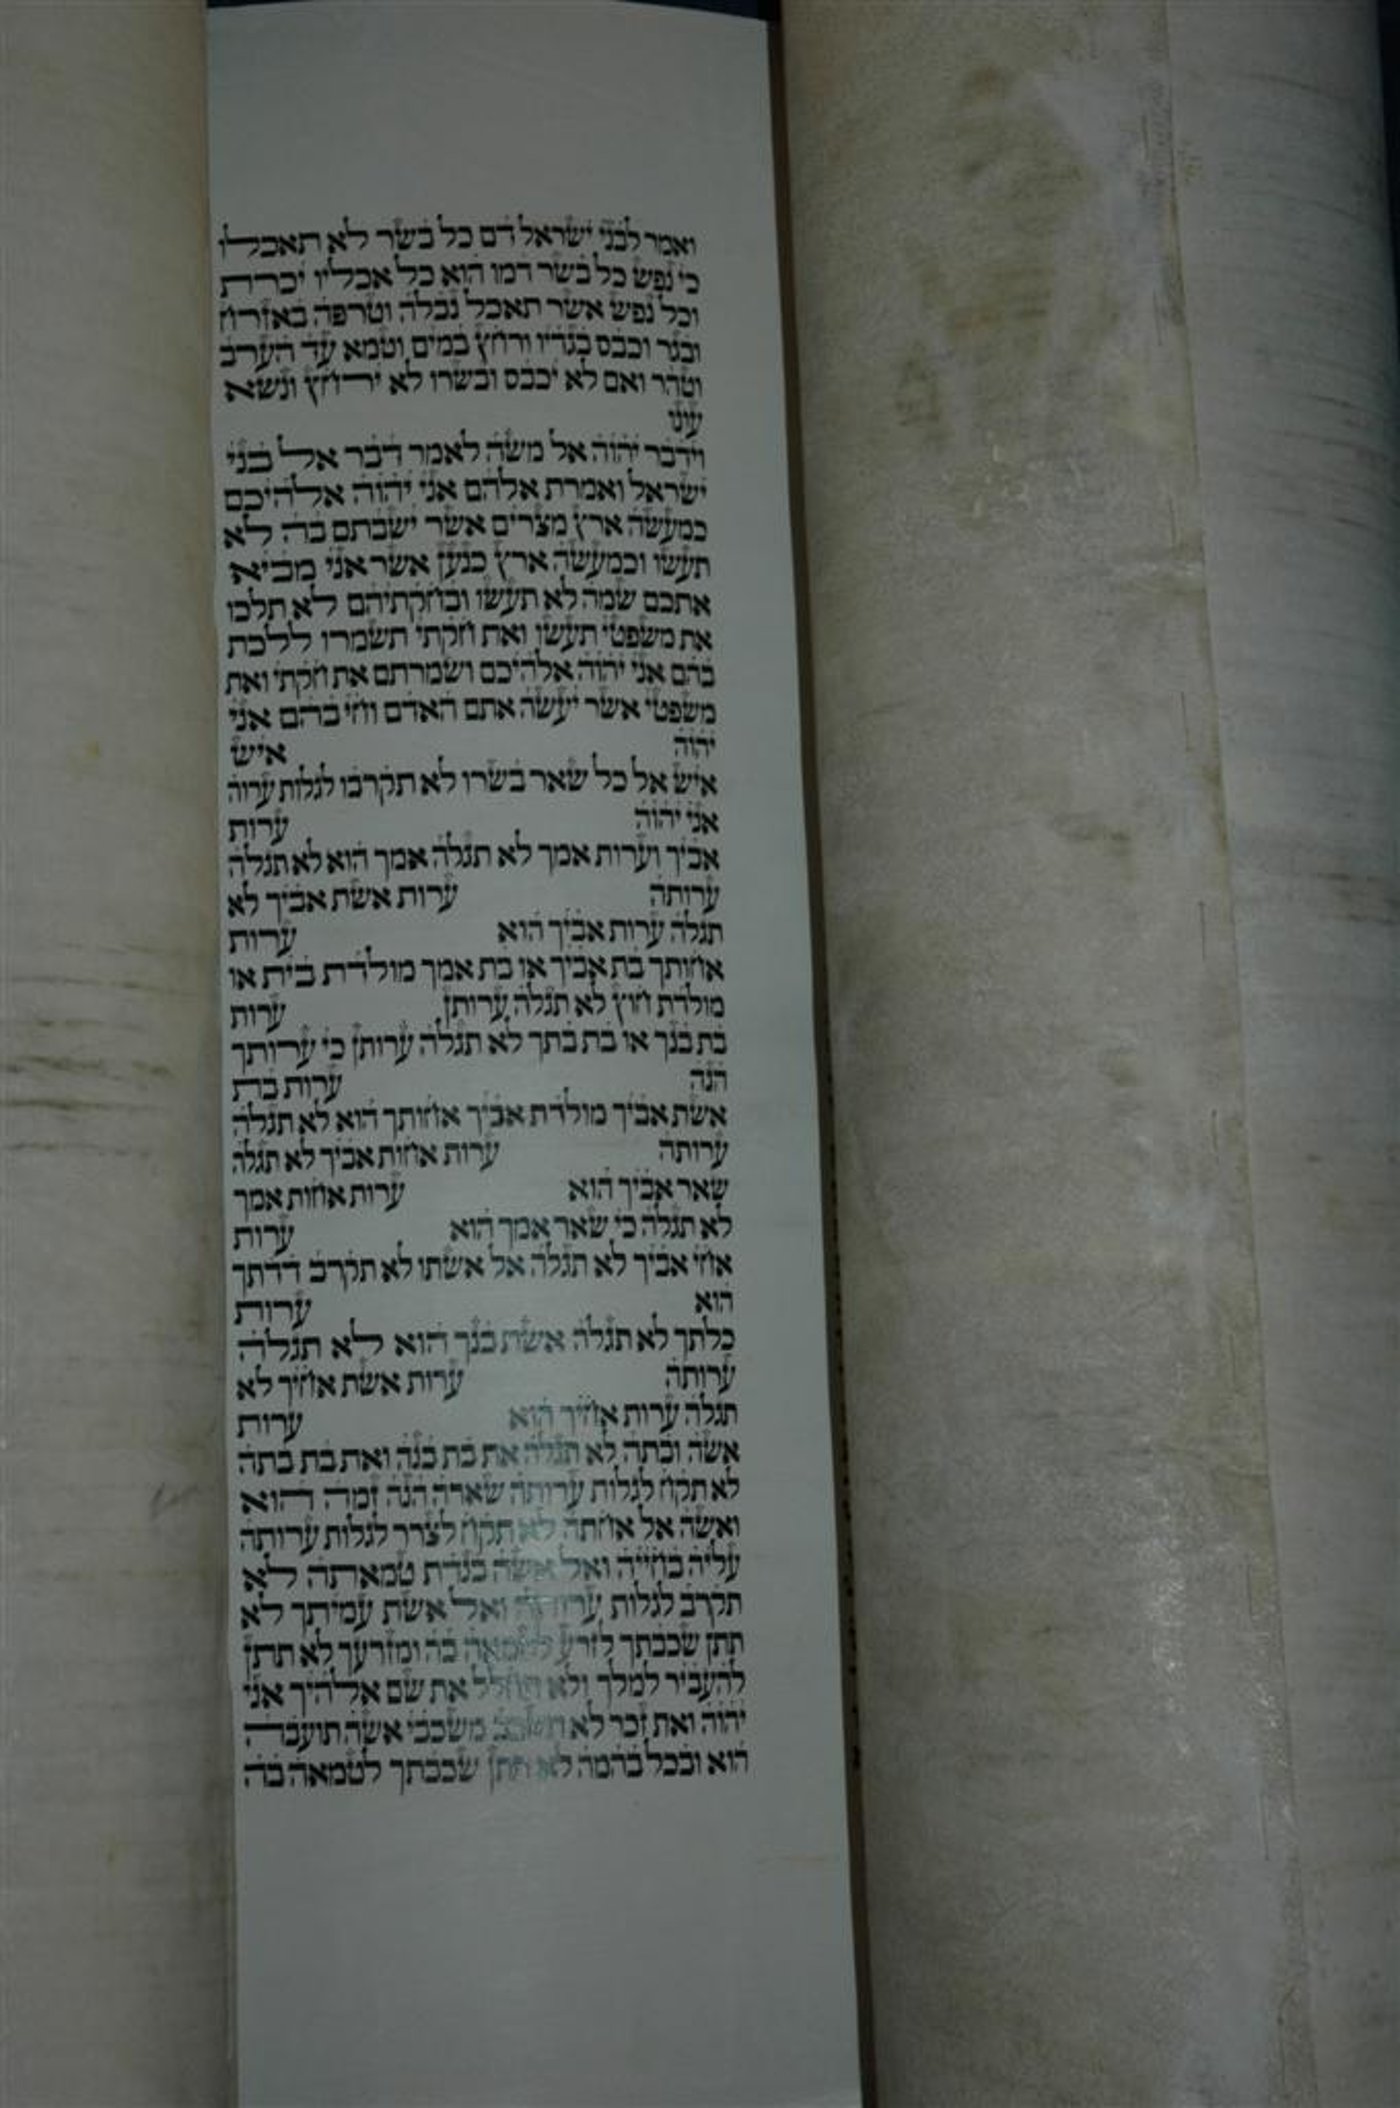 ואמר לבני ישראל דם כל בשר לא תאכלו
כי נפש כל בשר דמו הוא כל אכליו יכרת
וכל נפש אשר תאכל נבלה וטרפה באזרח
ובגר וכבס בגדיו ורחץ במים וטמא עד הערב
וטהר ואם לא יכבס ובשרו לא ירחץ ונשא
עונו
וידבר יהוה אל משה לאמר דבר אל בני
ישראל ואמרת אלהם אני יהוה אלהיכם
כמעשה ארץ מצרים אשר ישבתם בה לא
תעשו וכמעשה ארץ כנען אשר אני מביא
אתכם שמה לא תעשו ובחקתיהם לא תלכו
את משפטי תעשו ואת חקתי תשמרו ללכת
בהם אני יהוה אלהיכם ושמרתם את חקתי ואת
משפטי אשר יעשה אתם האדם וחי בהם אני
יהוה איש
איש אל כל שאר בשרו לא תקרבו לגלות ערוה
אני יהוה ערות
אביך וערות אמך לא תגלה אמך הוא לא תגלה
ערותה ערות אשת אביך לא
תגלה ערות אביך הוא ערות
אחותך בת אביך או בת אמך מולדת בית או
מולדת חוץ לא תגלה ערותן ערות
בת בנך או בת בתך לא תגלה ערותן כי ערותך
הנה ערות בת
אשת אביך מולדת אביך אחותך הוא לא תגלה
ערותה ערות אחות אביך לא תגלה
שאר אביך הוא ערות אחות אמך
לא תגלה כי שאר אמך הוא ערות
אחי אביך לא תגלה אל אשתו לא תקרב דדתך
הוא ערות
כלתך לא תגלה אשת בנך הוא לא תגלה
ערותה ערות אשת אחיך לא
תגלה ערות אחיך הוא ערות
אשה ובתה לא תגלה את בת בנה ואת בת בתה
לא תקח לגלות ערותה שארה הנה זמה הוא
ואשה אל אחתה לא תקח לצרר לגלות ערותה
עליה בחייה ואל אשה בנדת טמאתה לא
תקרב לגלות ערותה ואל אשת עמיתך לא
תתן שכבתך לזרע לטמאה בה ומזרעך לא תתן
להעביר למלך ולא תחלל את שם אלהיך אני
יהוה ואת זכר לא תשכב משכבי אשה תועבה
הוא ובכל בהמה לא תתן שכבתך לטמאה בה